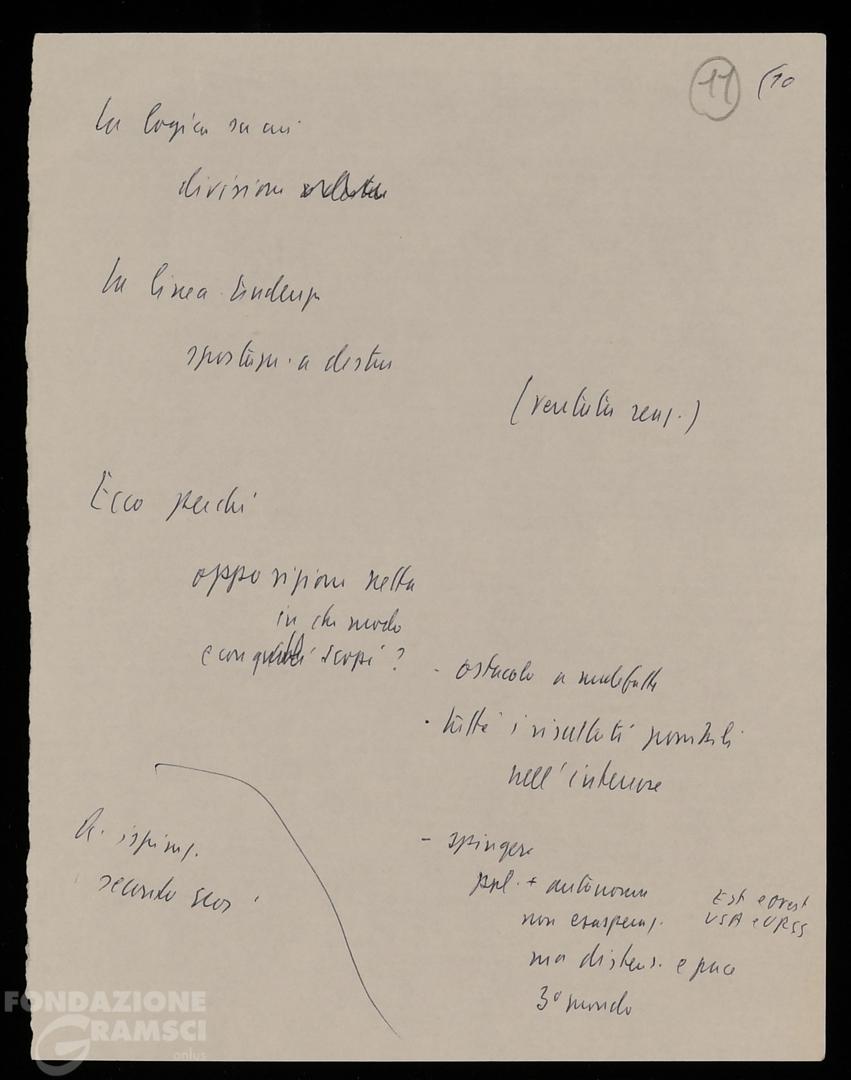 11 (10
La logica su cui
divisione
La linea tendenz.
spostam. a destra
(ventata reaz.)
Ecco perché
opposizione netta
in che modo
e con quali scopi?
- ostacolo a malefatte
- tutti i risultati possibili
nell'interesse
- spingere
pol. + autonoma
Est e Ovest
non esasperaz.
USA e URSS
ma distens. e pace
3° mondo
ispiraz.
secondo
FONDAZIONE
GRAMSCI
onlus